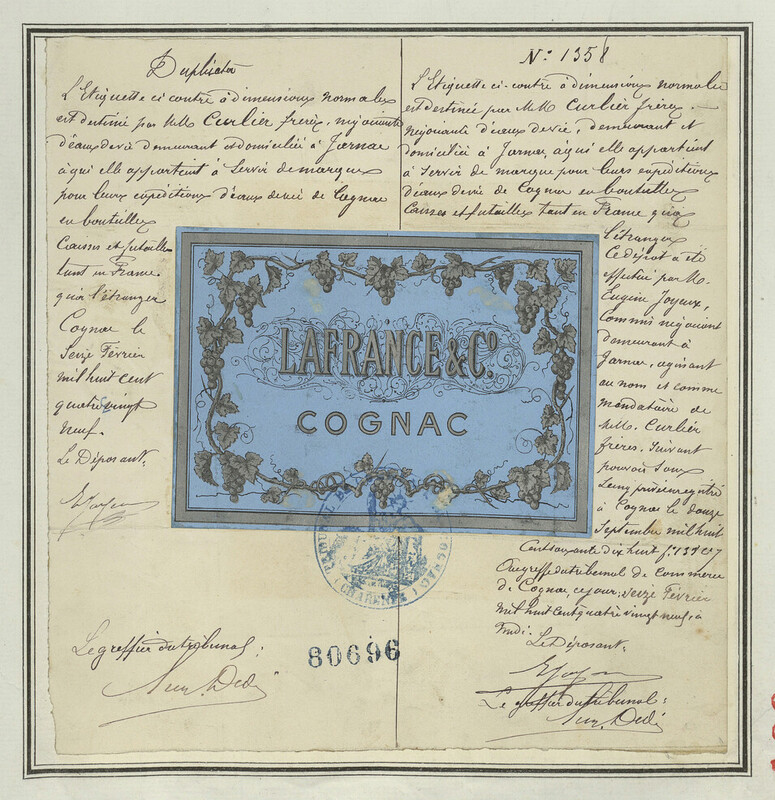 Duplicata
L'Etiquette ci contre à dimensions normales
est destinée par MM. Curlier frères, négociants
d'eaux de vie demeurant et domiciliés à Jarnac
à qui elle appartient à servir de marque
pour leurs expéditions d'eaux de vie de Cognac
en bouteilles
Caisses et futailles
tant en France
qu'à l'étranger
Cognac le
Seize Février
mil huit cent
quatre vingt
neuf.
Le Déposant,
Le greffier du tribunal:
N° 1358
L'Etiquette ci-contre à dimensions normales
est destinée par MM. Curlier frères,
négociants d'eaux de vie, demeurant et
domiciliés à Jarnac, à qui elle appartient
à servir de marque pour leurs expéditions
d'eaux de vie de Cognac en bouteilles
Caisses et futailles tant en France qu'à
l'étranger
Ce dépôt a été
effectué par M.
Eugène Joyeux,
Commis négociant
demeurant à
Jarnac, agissant
au nom et comme
mandataire de
MM. Curlier
frères, suivant
pouvoir sous
seing privé enregistré
à Cognac le douze
Septembre mil huit
cent soixante dix huit f. 137 C 7
Au greffe du tribunal de Commerce
de Cognac, ce jour, seize Février
mil huit cent quatre vingt neuf, à
midi.
Le Déposant,
Le greffier du tribunal:
LAFRANCE & Co.
COGNAC
TRIBUNAL
COGNAC
(CHARENTE)
80696